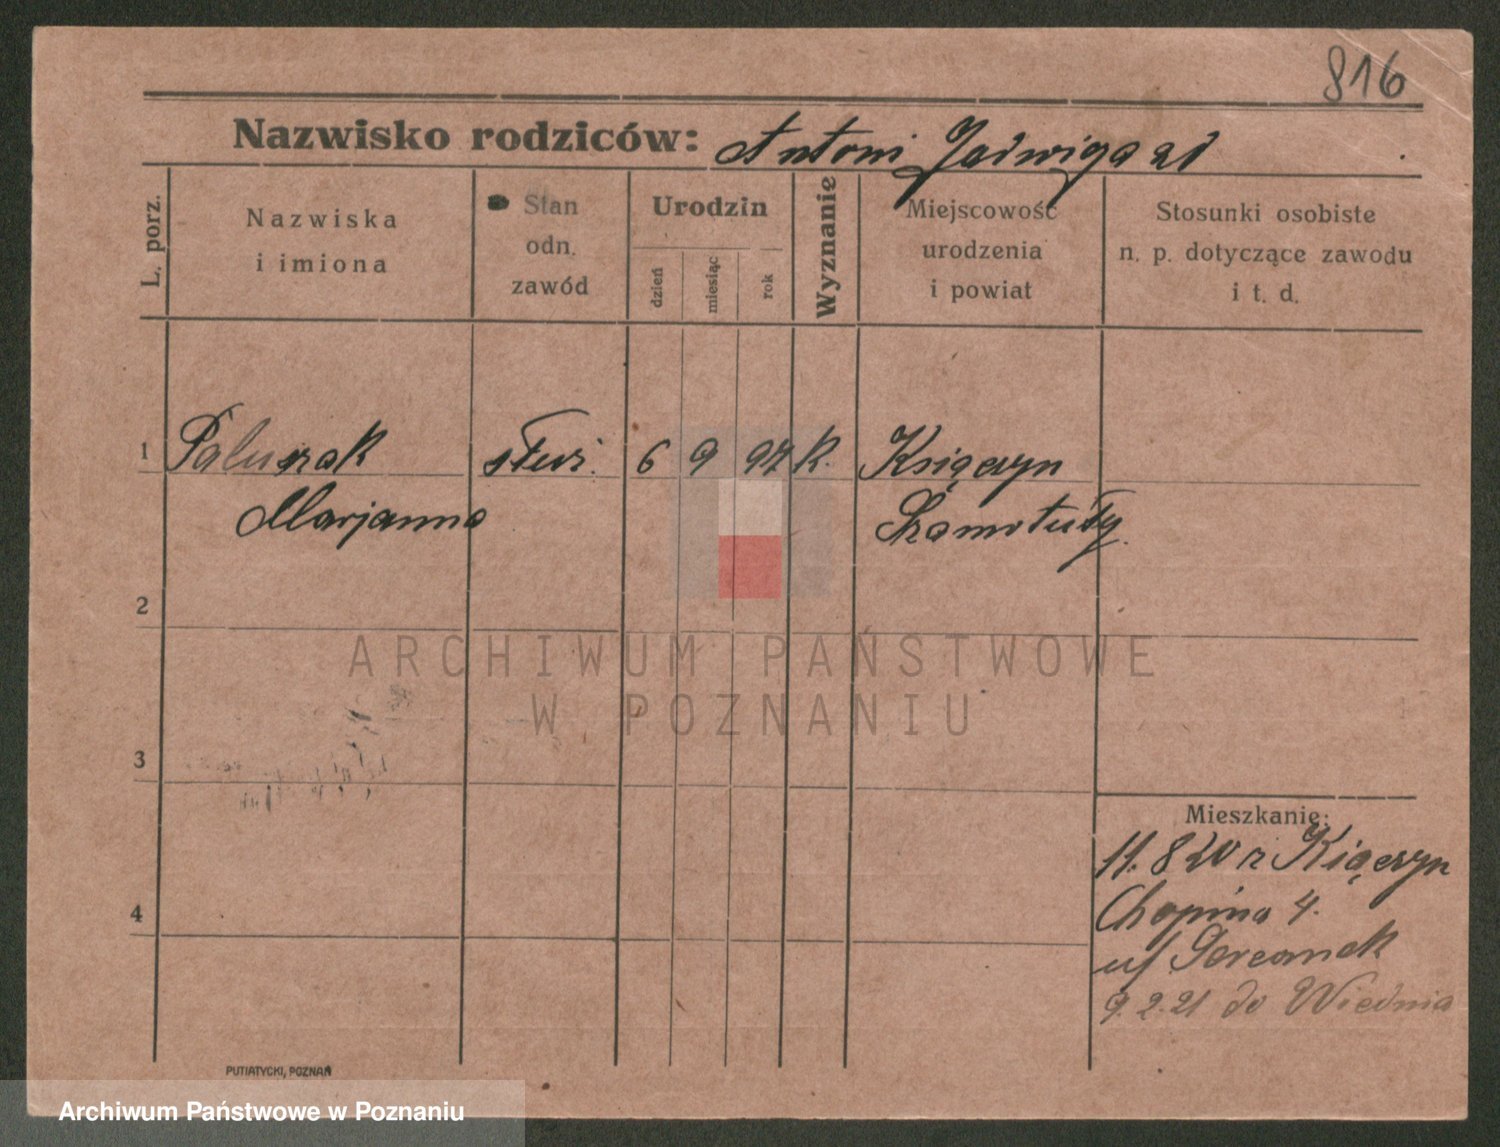 816
Nazwisko rodziców: Antoni Jadwiga
L. porz.
Nazwiska
i imiona
Stan
odn.
zawód
Urodzin
dzień
miesiąc
rok
Wyznanie
Miejscowość
urodzenia
i powiat
Stosunki osobiste
n. p. dotyczące zawodu
i t. d.
1 Paluszak służ. 6 9 97 K. Książczyn
Marjanna Szamotuły
2
3
4
Mieszkanie:
11. 8 20 z
Chopina 4.
u/
9. 2. 21 do Wiednia
PUTIATYCKI, POZNAŃ
ARCHIWUM PAŃSTWOWE
W POZNANIU
Archiwum Państwowe w Poznaniu